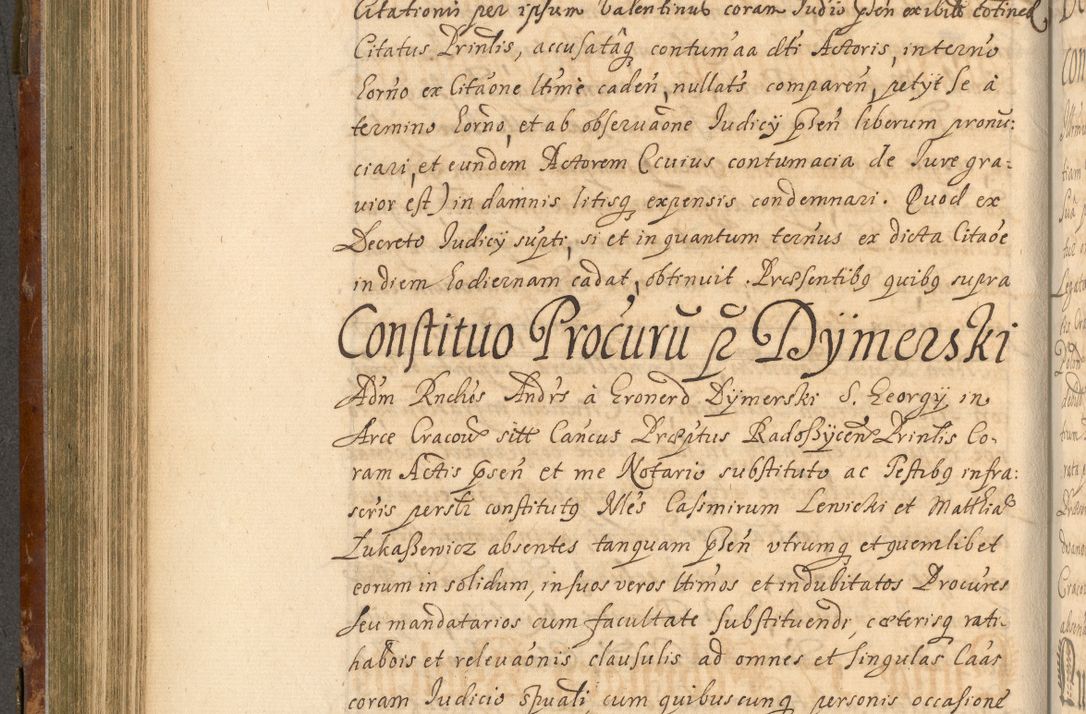 Citationis per ipsum Valentinus coram Judio pñsñ exibitt totined
Citatus Prinlis, accusatãq contumãa dti Actoris, in terno
horño ex Citãone ltimè cadeñ, nullats compareñ, petyt se à
termino horño, et ab observãone Judicÿ pñseñ liberum pronũ:
ciari, et eundem Actorem (cuius contumacia de Jure gra:
vior est) in damnis litisq expensis condemnari. Quod ex
Decreto Judicÿ supti, si et in quantum ternus ex dicta Citãoe
in diem hodiernam cadat, obtinuit. Præsentibq quibq supra
Constituo Procurũ p Dÿmerski
Adm Rndus Andrs à Gronerd Dÿmerski S. Georgÿ in
Arce Cracov sitt Cancus Præptus Radoßÿceñ Prinlis Co-
ram Actis pñseñ et me Notario substituto ac Testibq infra:
scris perslr constitutq Mles Casimirum Lewicki et Matthia
Łukaßewicz absentes tanquam pñseñ vtrumq et quemlibet
eorum in solidum, in suos veros ltimos et indubitatos Procures
seu mandatarios cum facultate substituendi, cæterisq rati-
habõis et relevãonis clausulis ad omnes et singulas Cãas
coram Judicio spuali, cum quibuscunq personis occasione